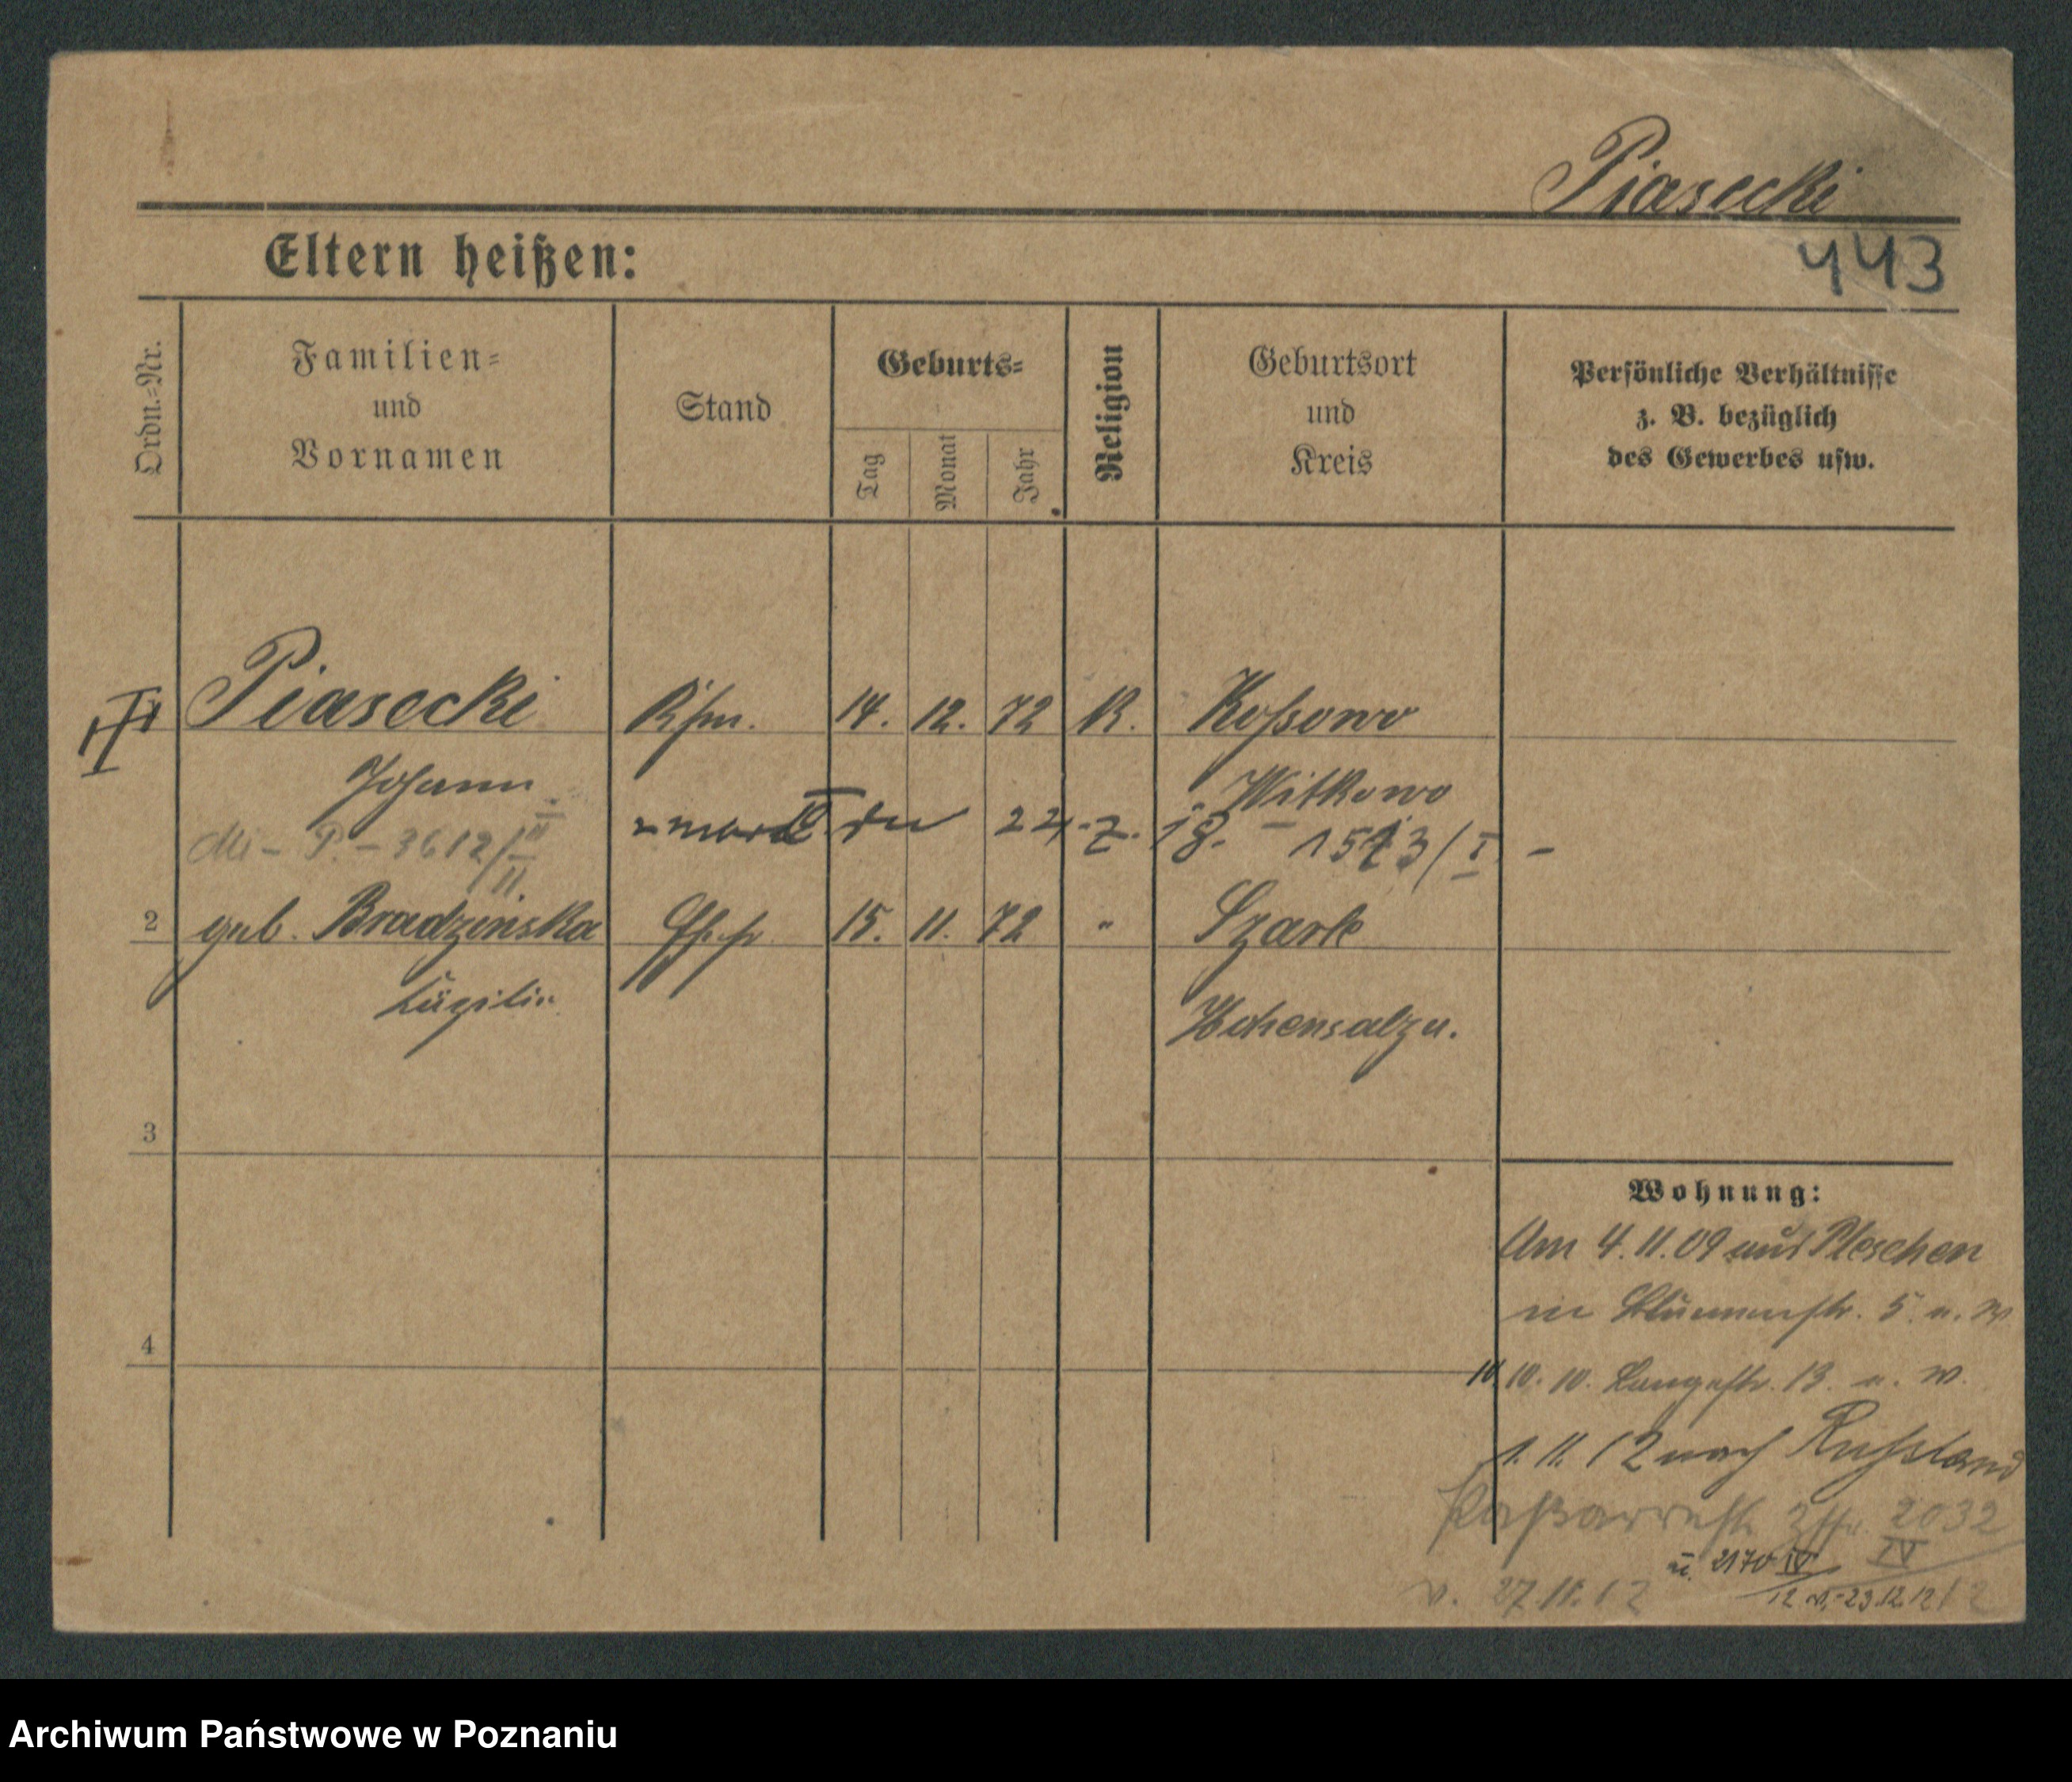 Piasecki
Eltern heißen:
443
Ordn.=Nr.
Familien=
und
Vornamen
Stand
Geburts=
Tag
Monat
Jahr
Religion
Geburtsort
und
Kreis
Persönliche Verhältnisse
z. B. bezüglich
des Gewerbes usw.
Piasecki Kfm. 14. 12. 72 K. Koßowo
Johann Witkowo
3612/II 22. 7. 18. 1573/I
2 geb. Bradzinska 15. 11. 72 " Szarle
Cäzilie Hohensalza.
3
4
Wohnung:
Am 4.11.09 aus Pleschen
in Blumenstr. 5 u. W
10. 10. Langestr. 13. u. W.
1.11.12 nach Russland
2032
IV
u. 2170 IV
12 v. 23.12.12
v. 27.11.12
Archiwum Państwowe w Poznaniu